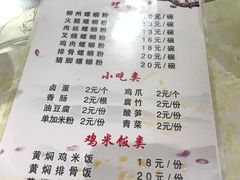 柳州螺蛳粉 10元/碗
火腿螺蛳粉 13元/碗
肉丝螺蛳粉 13元/碗
叉烧螺蛳粉 元/碗
鸡肉螺蛳粉 元/碗
排骨螺蛳粉 元/碗
猪脚螺蛳粉 20元/碗
小吃类
卤蛋 2元/个 鸡爪 2元/个
香肠 2元/根 腐竹 2元/份
油豆腐 2元/份 酸笋 2元/份
单加米粉 2元/份 青菜 2元/份
鸡米饭类
黄焖鸡米饭 18元/份
黄焖排骨饭 20元/份